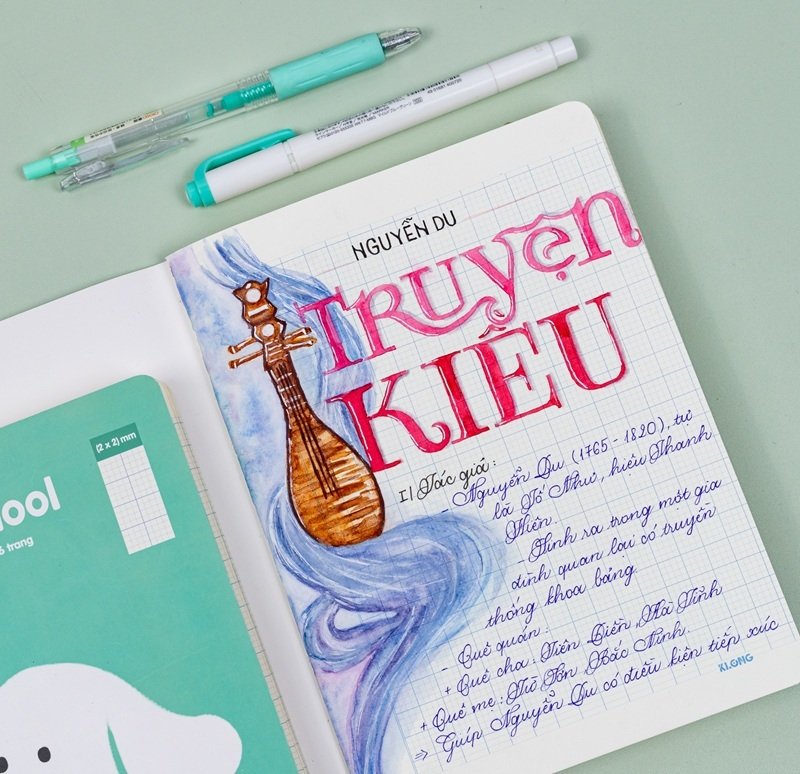 NGUYỄN DU
TRUYỆN
KIỀU
I/ Tác giả:
- Nguyễn Du (1765-1820), tự
là Tố Như, hiệu Thanh
Hiên.
- Sinh ra trong một gia
đình quan lại có truyền
thống khoa bảng.
- Quê quán:
+ Quê cha: Tiên Điền, Hà Tĩnh
+ Quê mẹ: Từ Sơn, Bắc Ninh.
⇒ Giúp Nguyễn Du có điều kiện tiếp xúc
KLONG
(2 x 2) mm
hool
6 trang